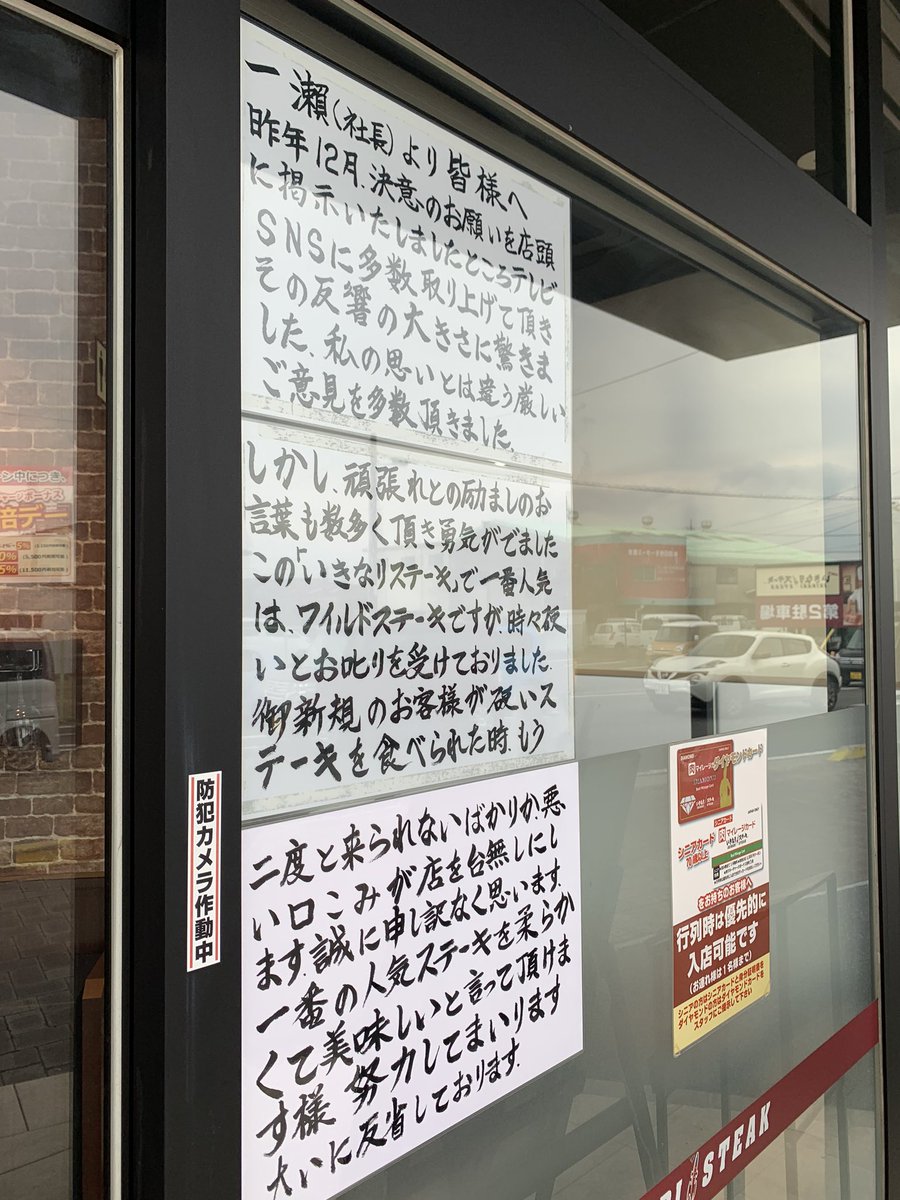 一瀬(社長)より皆様へ
昨年12月、決意のお願いを店頭
に掲示いたしましたところテレビ
SNSに多数取り上げて頂き
その反響の大きさに驚きま
した、私の思いとは違う厳しい
ご意見を多数頂きました。
しかし、頑張れとの励ましのお
言葉も数多く頂き勇気がでました
この「いきなりステーキ」で一番人気
は、ワイルドステーキですが、時々硬
いとお叱りを受けておりました。
御新規のお客様が硬いス
テーキを食べられた時、もう
二度と来られないばかりか、悪
い口こみが店を台無しにし
ます。誠に申し訳なく思います。
一番の人気ステーキを柔らか
くて美味しいと言って頂けま
す様 努力してまいります
大いに反省しております。
防犯カメラ作動中
ダイヤモンドカード
シニアカード
マイレージカード
をお持ちのお客様へ
行列時は優先的に
入店可能です
(お連れ様は1名様まで)
スタッフにご提示して下さい
第2駐車場
STEAK